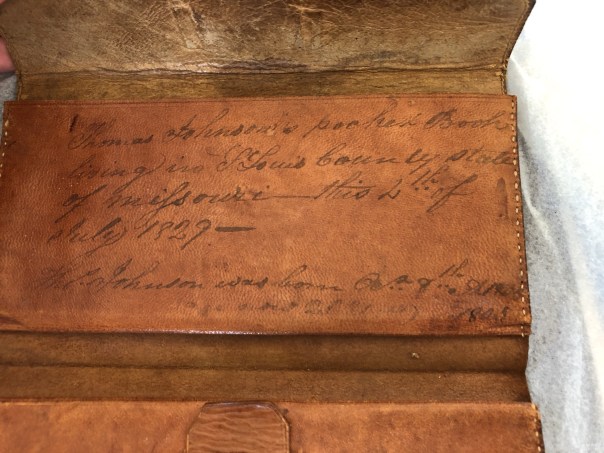 Thomas Johnson's pocket Book
living in St Louis County state
of missouri — this 4th of
July 1829 —
Johnson was born Oct 8th